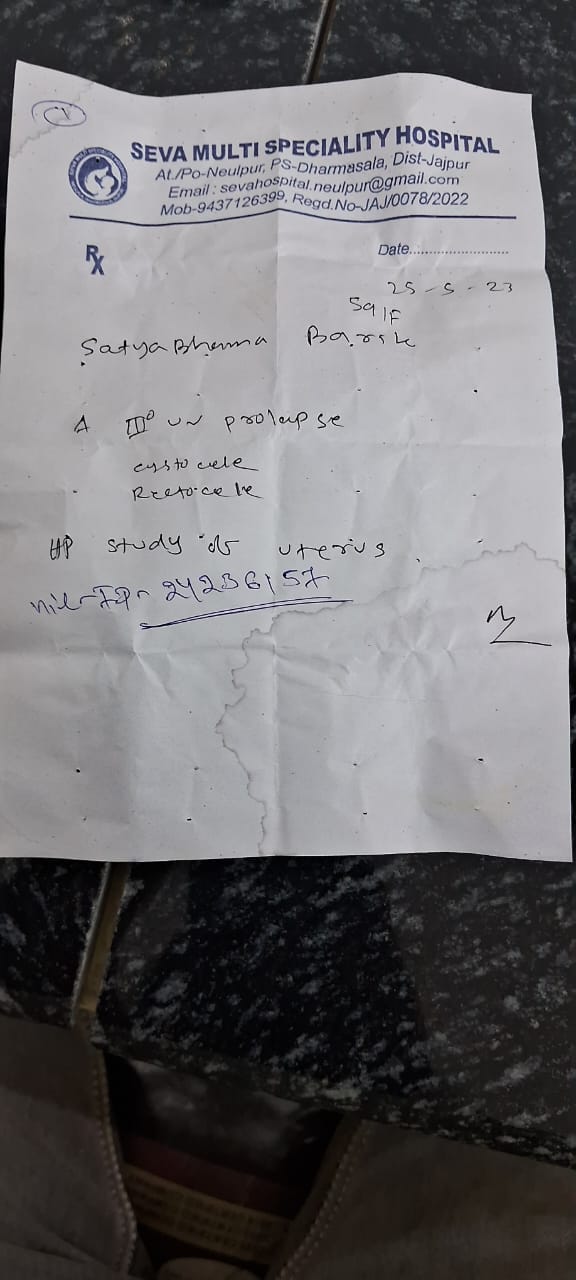 SEVA MULTI SPECIALITY HOSPITAL
At./Po-Neulpur, PS-Dharmasala, Dist-Jajpur
Email : sevahospital.neulpur@gmail.com
Mob-9437126399, Regd.No-JAJ/0078/2022
Rx
Date..........................
25-5-23
59/F
SatyaBhama Barik
Δ IIIº ut prolapse
cystocele
Rectocele
HP study of uterus
24236157